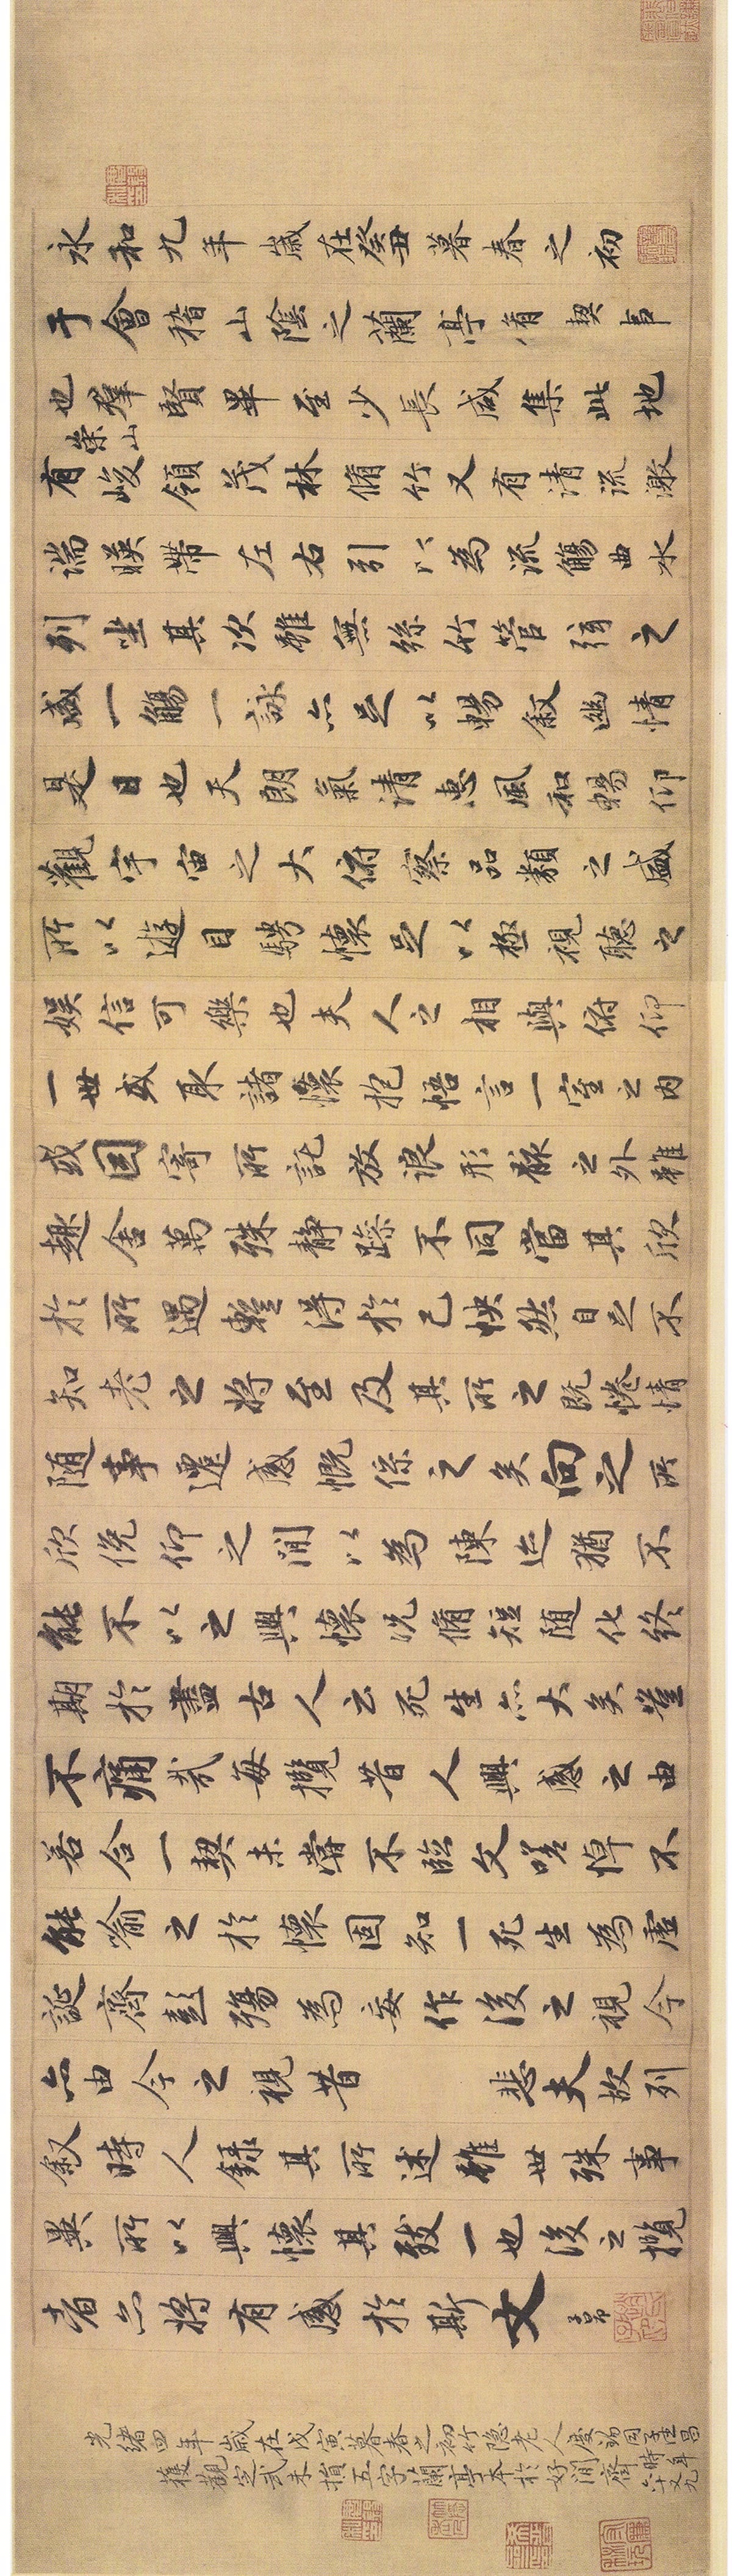 永和九年歲在癸丑暮春之初
于會稽山陰之蘭亭脩禊事
也群賢畢至少長咸集此地
有崇山峻領茂林脩竹又有清流激
湍暎帶左右引以為流觴曲水
列坐其次雖無絲竹管弦之
盛一觴一詠亦足以暢敘幽情
是日也天朗氣清惠風和暢仰
觀宇宙之大俯察品類之盛
所以遊目騁懷足以極視聽之
娛信可樂也夫人之相與俯仰
一世或取諸懷抱悟言一室之內
或因寄所託放浪形骸之外雖
趣舍萬殊靜躁不同當其欣
於所遇暫得於己怏然自足不
知老之將至及其所之既惓情
隨事遷感慨係之矣向之所
欣俛仰之閒以為陳迹猶不
能不以之興懷況脩短隨化終
期於盡古人云死生亦大矣豈
不痛哉每攬昔人興感之由
若合一契未嘗不臨文嗟悼不
能喻之於懷固知一死生為虛
誕齊彭殤為妄作後之視今
亦由今之視昔 悲夫故列
敘時人錄其所述雖世殊事
異所以興懷其致一也後之攬
者亦將有感於斯文
子昂
光緒四年歲在戊寅暮春之初竹隱老人慶錫同
獲觀定武未損五字蘭亭本於好閒齋時年六十又九